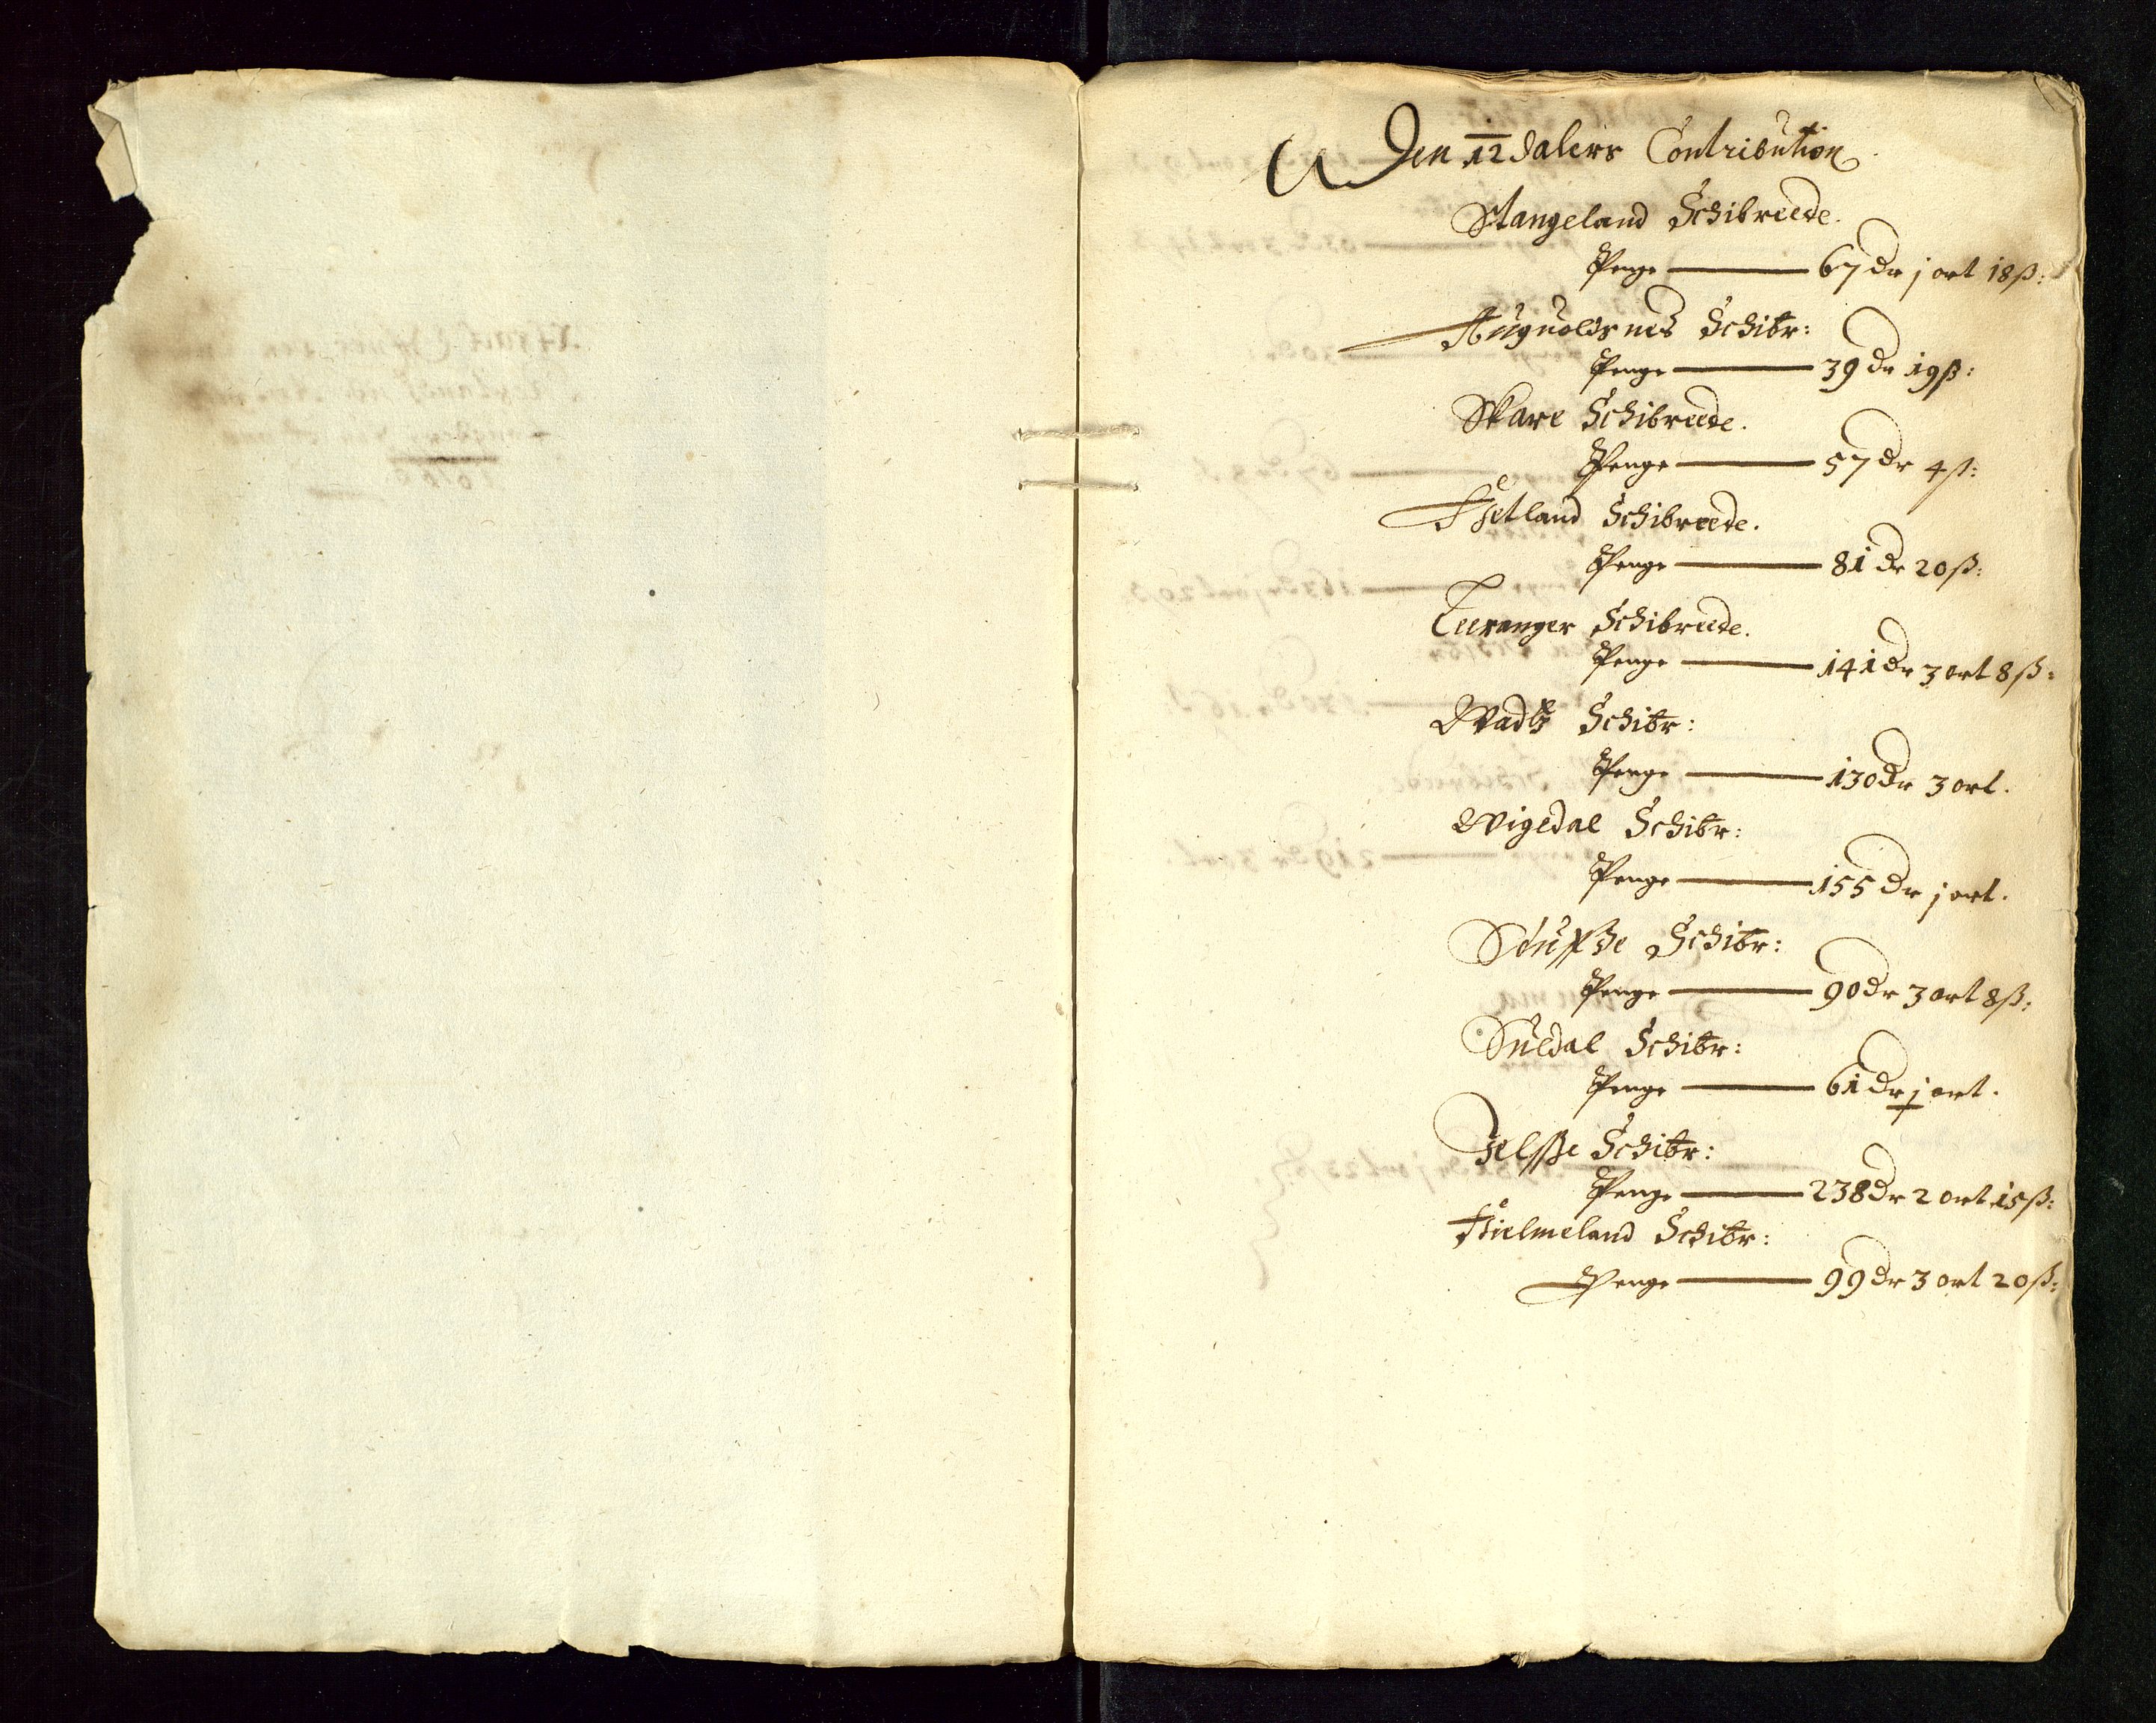 Den 12 dalers Contribution
Stangeland Schibreede.
Penge 67 dr j ort 18 ß:
Auguoldsnes Schibr:
Penge 39 dr 19 ß:
Skare Schibreede.
Penge 57 dr 4 ß:
Hetland Schibreede.
Penge 81 dr 20 ß:
Schibreede.
Penge 141 dr 3 ort 8 ß:
Schibr:
Penge 130 dr 3 ort.
Wigedal Schibr:
Penge 155 dr j ort.
Schibr:
Penge 90 dr 3 ort 8 ß:
Suledal Schibr:
Penge 61 dr j ort.
Jelsße Schibr:
Penge 238 dr 2 ort 15 ß:
Hielmeland Schibr:
Penge 99 dr 3 ort 20 ß: